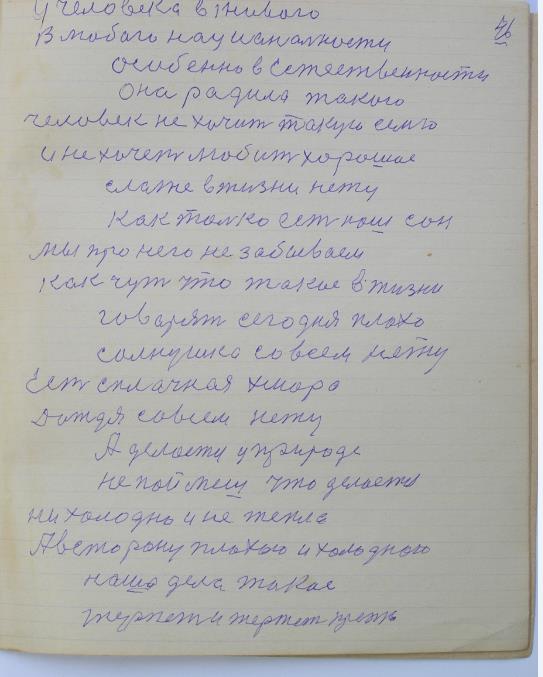 76
У человека в живого
В любого националности
особенно в Естественности
она радила такого
человек не хочит такую семю
и не хочет любит хорошое
слаже в жизни нету
как толко ест наш сон
мы про него не забываем
как чут что такое в жизни
говорят сегодня плохо
солнушка совсем нету
Ест сплачная хмара
Дождя совсем нету
А делаети у природе
не поймеш что делаетя
ни холодно и не тепло
А в сторону плохою и холодною
наша дела такое
терпет и терпет